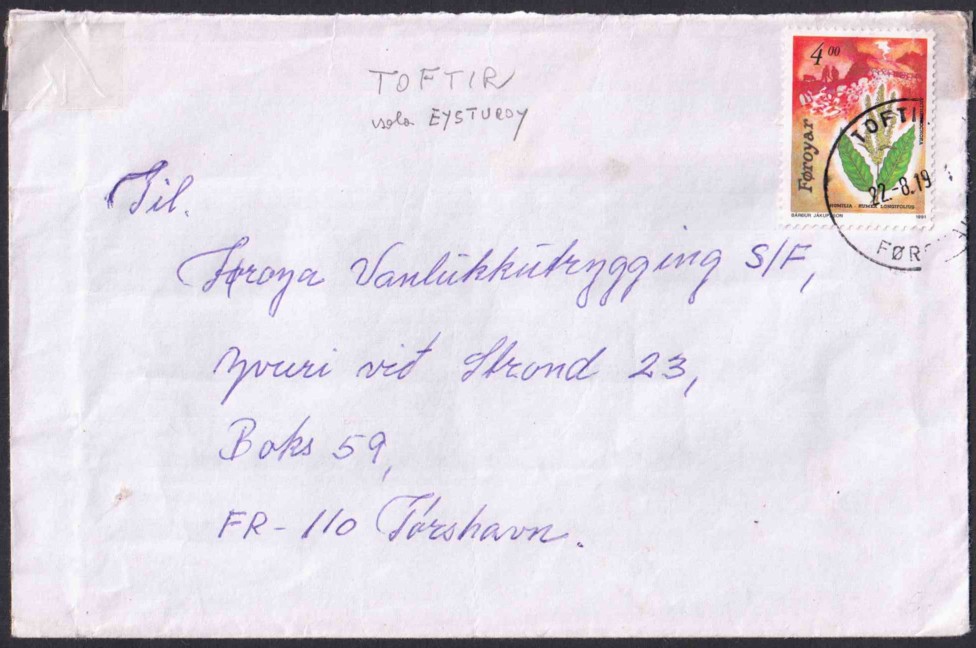 TOFTIR
isola EYSTUROY
4 00
Føroyar
HEIMULA · RUMEX LONGIFOLIUS
BÁRÐUR JÁKUPSSON 1991
TOFTI
22.-8.19
FØR
Til.
Føroya Vanlukkutrygging S/F,
Yviri við Strond 23,
Boks 59,
FR-110 Tórshavn.